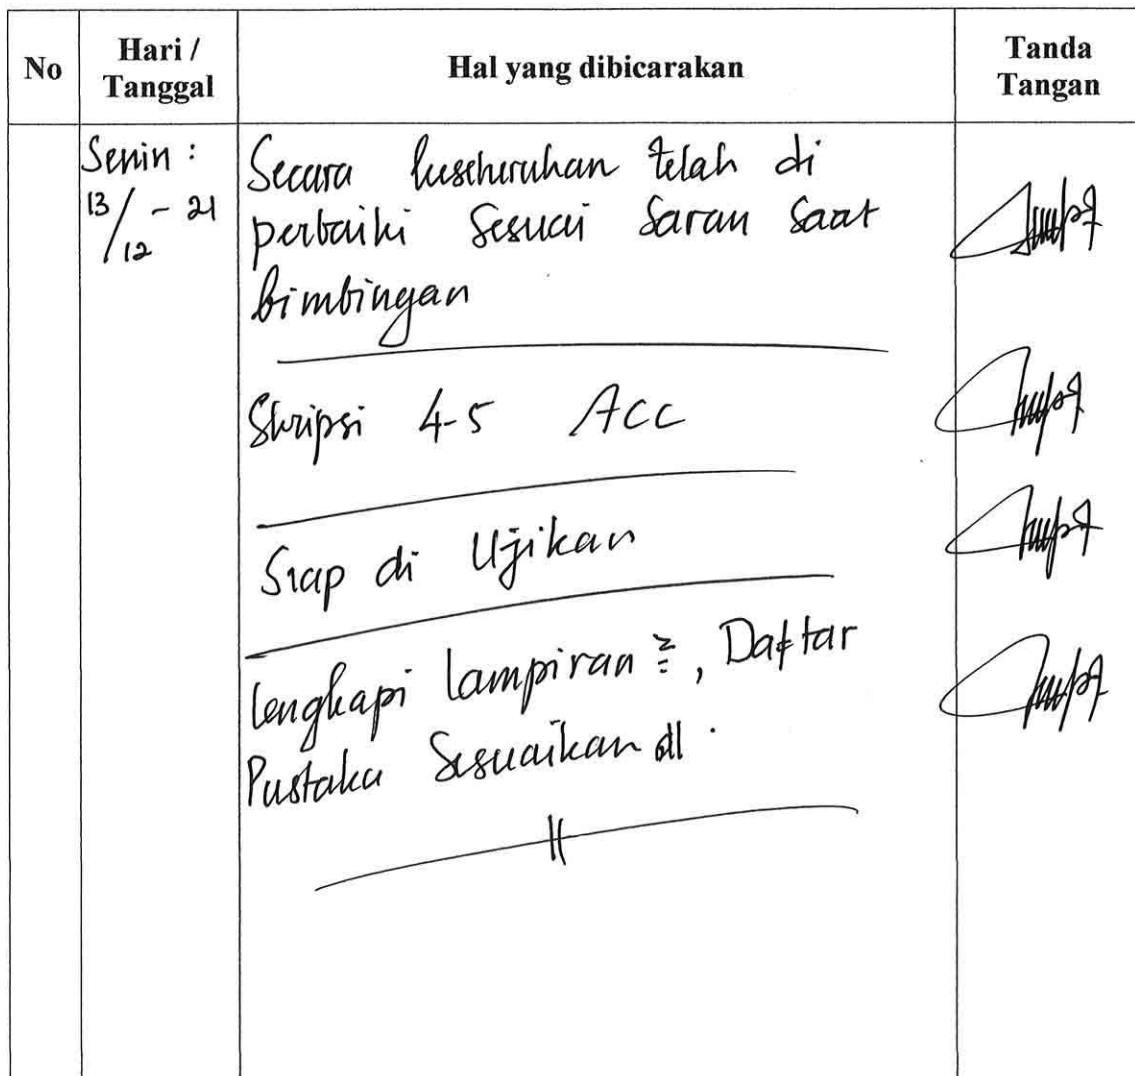 No
Hari /
Tanggal
Hal yang dibicarakan
Tanda
Tangan
Senin :
13/12 - 21
Secara keseluruhan telah di
perbaiki sesuai saran saat
bimbingan
Skripsi 4-5 ACC
Siap di Ujikan
lengkapi lampiran², Daftar
Pustaka Sesuaikan dll.